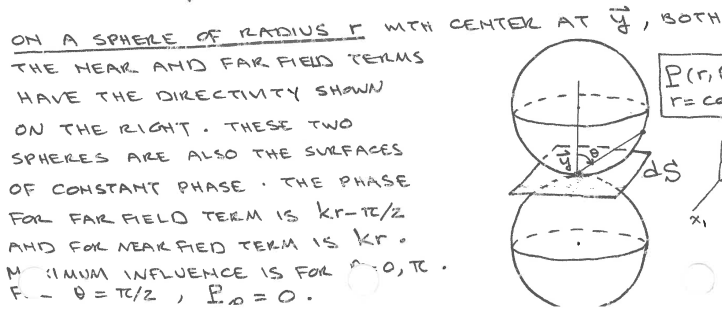 ON A SPHERE OF RADIUS r WITH CENTER AT y⃗, BOTH
THE NEAR AND FAR FIELD TERMS
HAVE THE DIRECTIVITY SHOWN
ON THE RIGHT. THESE TWO
SPHERES ARE ALSO THE SURFACES
OF CONSTANT PHASE. THE PHASE
FOR FAR FIELD TERM IS kr-π/2
AND FOR NEAR FIED TERM IS kr.
INFLUENCE IS FOR 0, π.
θ = π/2, = 0.
P(r,
r=
y⃗ θ
dS⃗
x₁